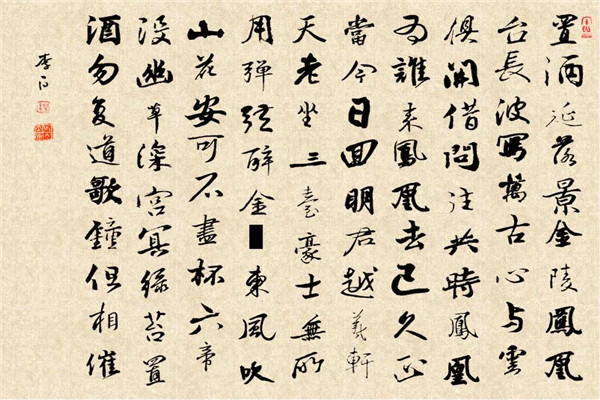 置酒延落景金陵鳳凰
台長波寫萬古心与雲
俱開借問往昔時鳳凰
为誰来鳳凰去已久正
當今日回明君越羲軒
天老坐三臺豪士無所
用彈弦醉金■東風吹
山花安可不盡杯六帝
沒幽草深宮冥綠苔置
酒勿复道歌鐘但相催
李白